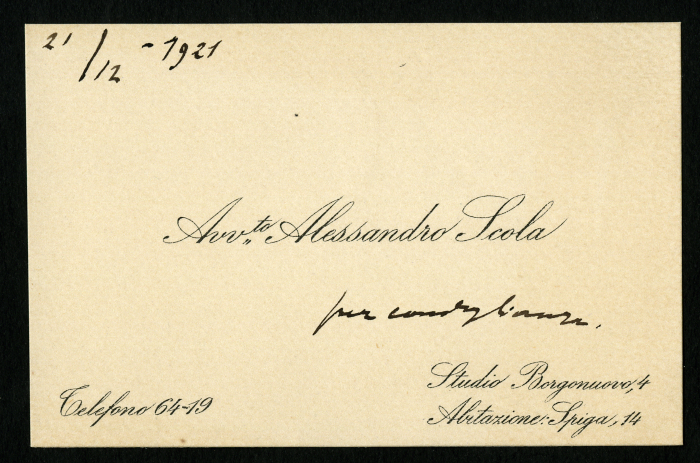 21/12 - 1921
Avv.to Alessandro Scola
per condoglianze.
Studio Borgonuovo, 4
Telefono 64-19
Abitazione: Spiga, 14